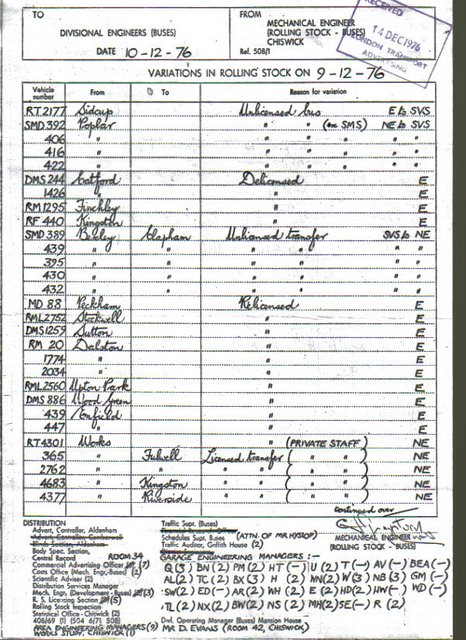 TO
DIVISIONAL ENGINEERS (BUSES)
DATE 10-12-76
FROM
MECHANICAL ENGINEER
(ROLLING STOCK - BUSES)
CHISWICK
Ref. 508/1
RECEIVED
14 DEC 1976
LONDON TRANSPORT
ADVERTISING
VARIATIONS IN ROLLING STOCK ON 9-12-76
Vehicle number From To Reason for variation
RT 2177 Sidcup Unlicensed bus E to SVS
SMD 392 Poplar " " (ex SMS) NE to SVS
406 " " " " " "
416 " " " " " "
422 " " " " " "
DMS 244 Catford Delicensed E
1426 " " E
RM 1295 Finchley " E
RF 440 Kingston " E
SMD 389 Bexley Clapham Unlicensed transfer SVS to NE
439 " " " " " "
395 " " " " " "
430 " " " " " "
432 " " " " " "
MD 88 Peckham Relicensed E
RML 2752 Stockwell " E
DMS 1259 Sutton " E
RM 20 Dalston " E
1774 " " E
2034 " " E
RML 2560 Upton Park " E
DMS 886 Wood Green " E
439 Enfield " E
447 " " E
RT 4301 Works " (PRIVATE STAFF) NE
365 " Fulwell Licensed transfer ( " " ) NE
2762 " " " " ( " " ) NE
4683 " Kingston " " ( " " ) NE
4377 " Riverside " " ( " " ) NE
continued over
MECHANICAL ENGINEER
(ROLLING STOCK - BUSES)
DISTRIBUTION
Advert, Controller, Aldenham
Advert, Controller, Camberwell
Body Spec. Section,
Central Record ROOM 34
Commercial Advertising Officer (7)
Costs Office (Mech. Engr.-Buses) (2)
Scientific Adviser (2)
Distribution Services Manager
R. S. Licensing Section (5)
Rolling Stock Inspection
Statistical Office - Chiswick (2)
408/69 (1) (504 6/71 508)
AREA ENGINEERING MANAGERS (9)
WORKS STUDY, CHISWICK (1)
Traffic Supt. (Buses)
Schedules Supt. (Buses) (ATTN. OF MR HYSLOP)
Traffic Auditor, Griffith House (2)
GARAGE ENGINEERING MANAGERS :-
Q (3) BN (2) PM (2) HT (-) U (2) T (-) AV (-) BEA (-)
AL (2) TC (2) BX (3) H (2) WN (2) W (3) NB (3) GM (-)
SW (2) ED (-) AR (2) WH (2) E (2) HD (2) HW (-) WD (-)
TL (2) NX (2) BW (2) NS (2) MH (2) SE (-) R (2)
Divl. Operating Manager (Buses) Mansion House
MR D. EVANS (ROOM 42, CHISWICK)